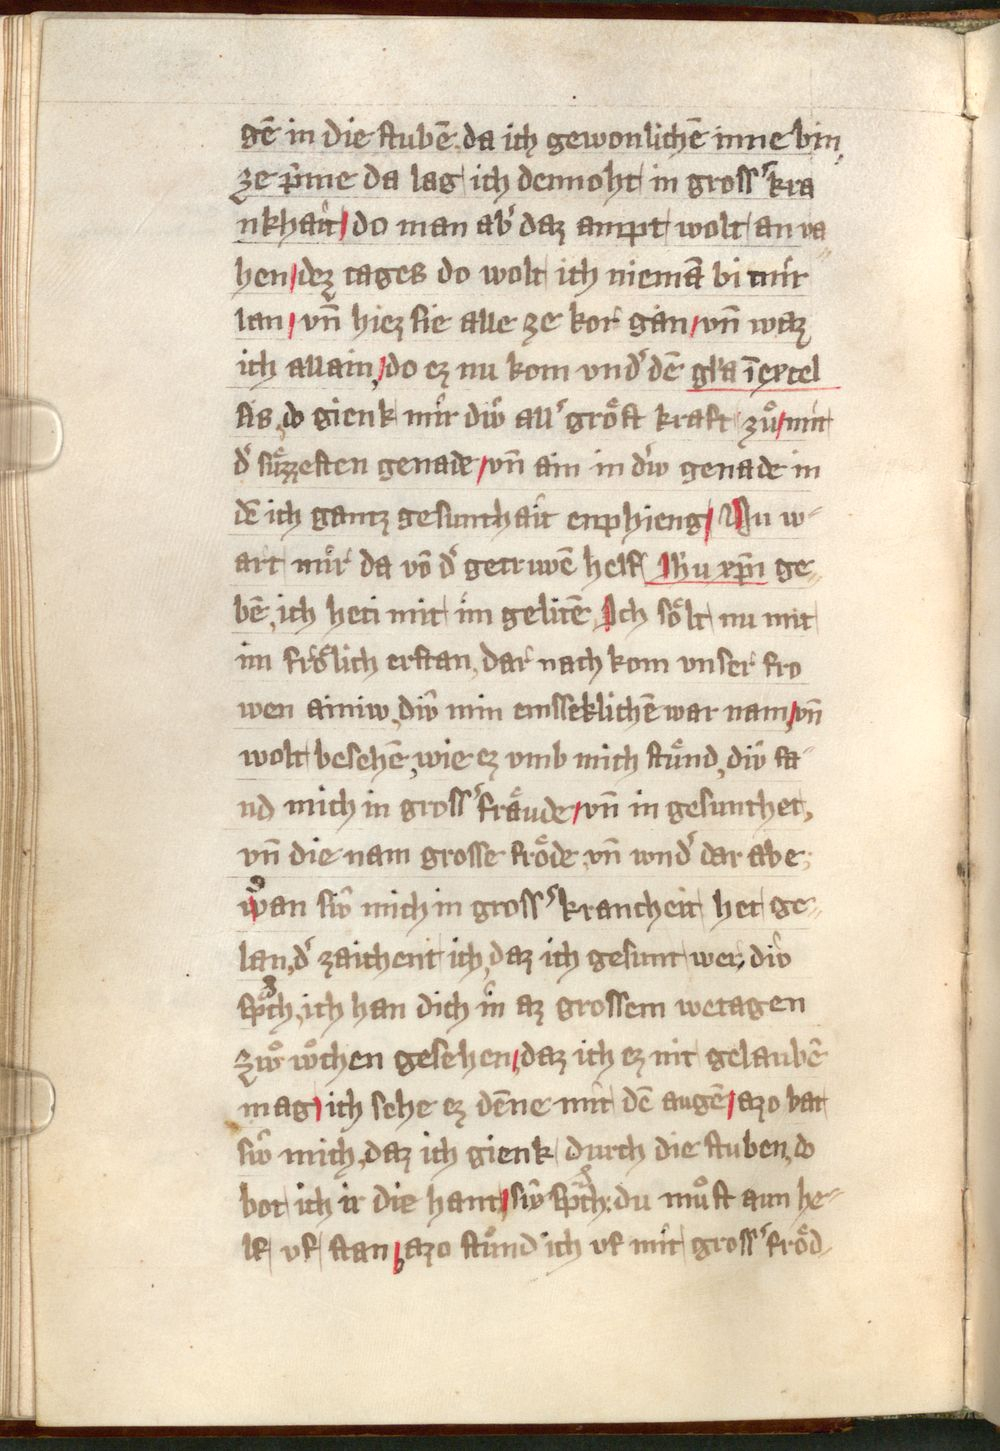 gē in die stubē da ich gewonlichē inne bin,
ze p̄me da lag ich dennoht in gross͛ kra
nkhait / do man ab͛ daz ampt wolt an va
hen / dez tages do wolt ich niemā bi mir
lan / vn̄ hiez sie alle ze kor gan / vn̄ waz
ich allain, / do ez nu kom vnd͛ dē gl'a ī excel
sis, do gienk mir diͮ all͛ groͤst kraft zuͦ / mit
d͛ suͤzzesten genade / vn̄ ain in diͮ genade in
dē ich gantz gesunthait enphieng / Nu w-
art mir da vō d͛ getruwē helf Jh'u xp̄i ge-
bē, ich heti mit im gelitē, Ich soͤlt nu mit
im froͤlich erstan, dar nach kom vnser fro
wen ainiw, diͮ min emsseklichē war nam, / vn̄
wolt besehē, wie ez vmb mich stuͤnd, diͮ fa-
nd mich in gross͛ fraͤude / vn̄ in gesunthet,
vn̄ die nam grosse froͤde vn̄ wnd͛ dar abe,
wan siͮ mich in gross͛ krancheit het ge-
lan, d͛ zaichent ich, daz ich gesunt wer, diͮ
sp̄ch, ich han dich in az grossem wetagen
zwͦ wͦchen gesehen, / daz ich ez nit gelaubē
mag / ich sehe ez dēne mit dē augē / azo bat
siͮ mich, daz ich gienk durch die stuben, do
bot ich ir die hant / siͮ sp̄ch: du muͦst aun he-
lf vf stan / azo stuͦnd ich vf mit gross͛ froͤd-